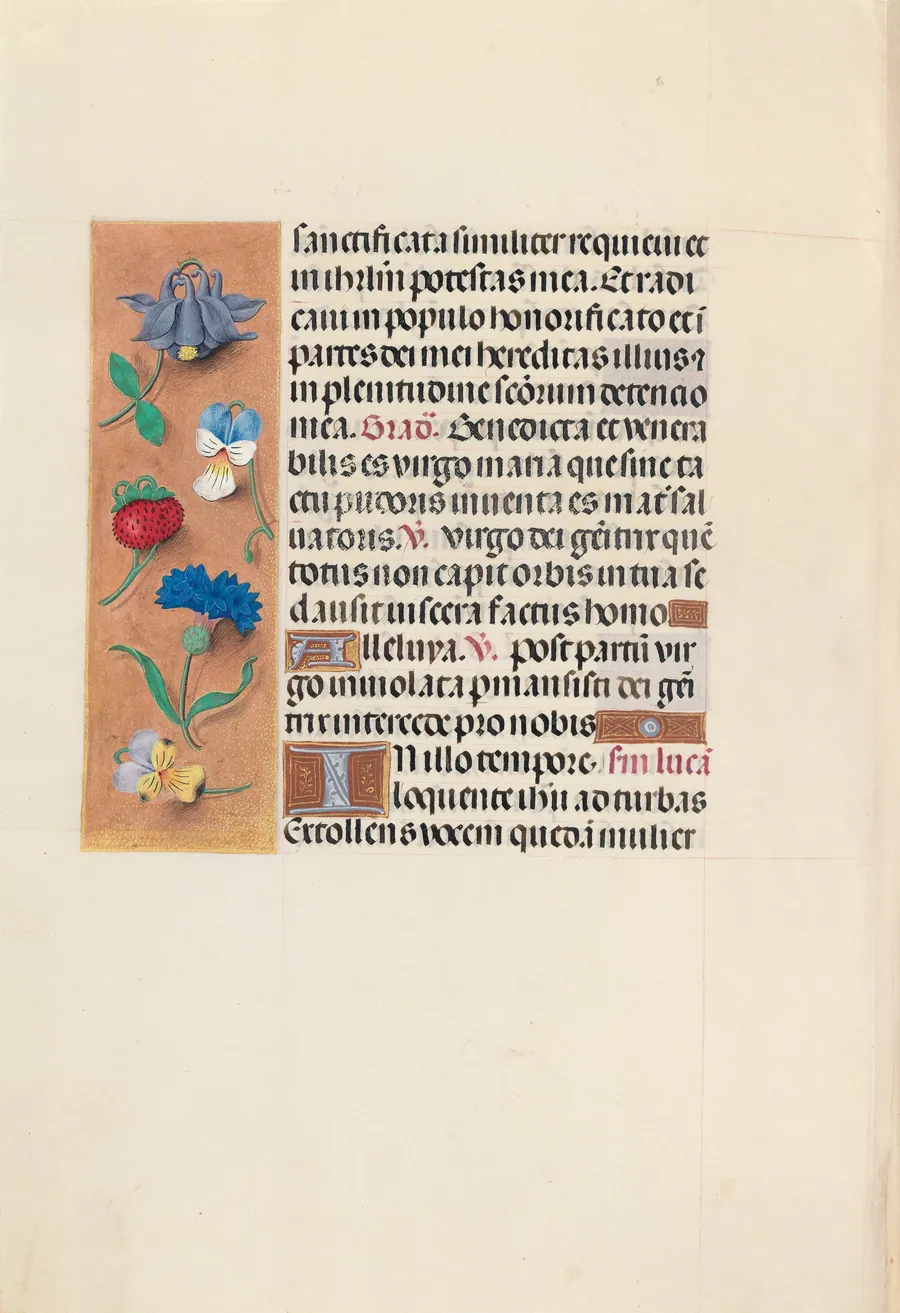 sanctificata similiter requieui et
in ihrl̄m potestas mea. Et radi
caui in populo honorificato et ī
partes dei mei hereditas illius ⁊
in plenitudine scōrum detencio
mea. Grad̄. Benedicta et venera
bilis es virgo maria que sine ta
ctu pudoris inuenta es mat̄ sal
uatoris. V̄. virgo dei gēitrix quē
totus non capit orbis in tua se
clausit uiscera factus homo
Alleluya. V̄. post partū vir
go inuiolata p̄mansisti dei gēi
trix intercede pro nobis
IN illo tempore. s̄m lucā
loquente ihū ad turbas
Extollens vocem quedā mulier